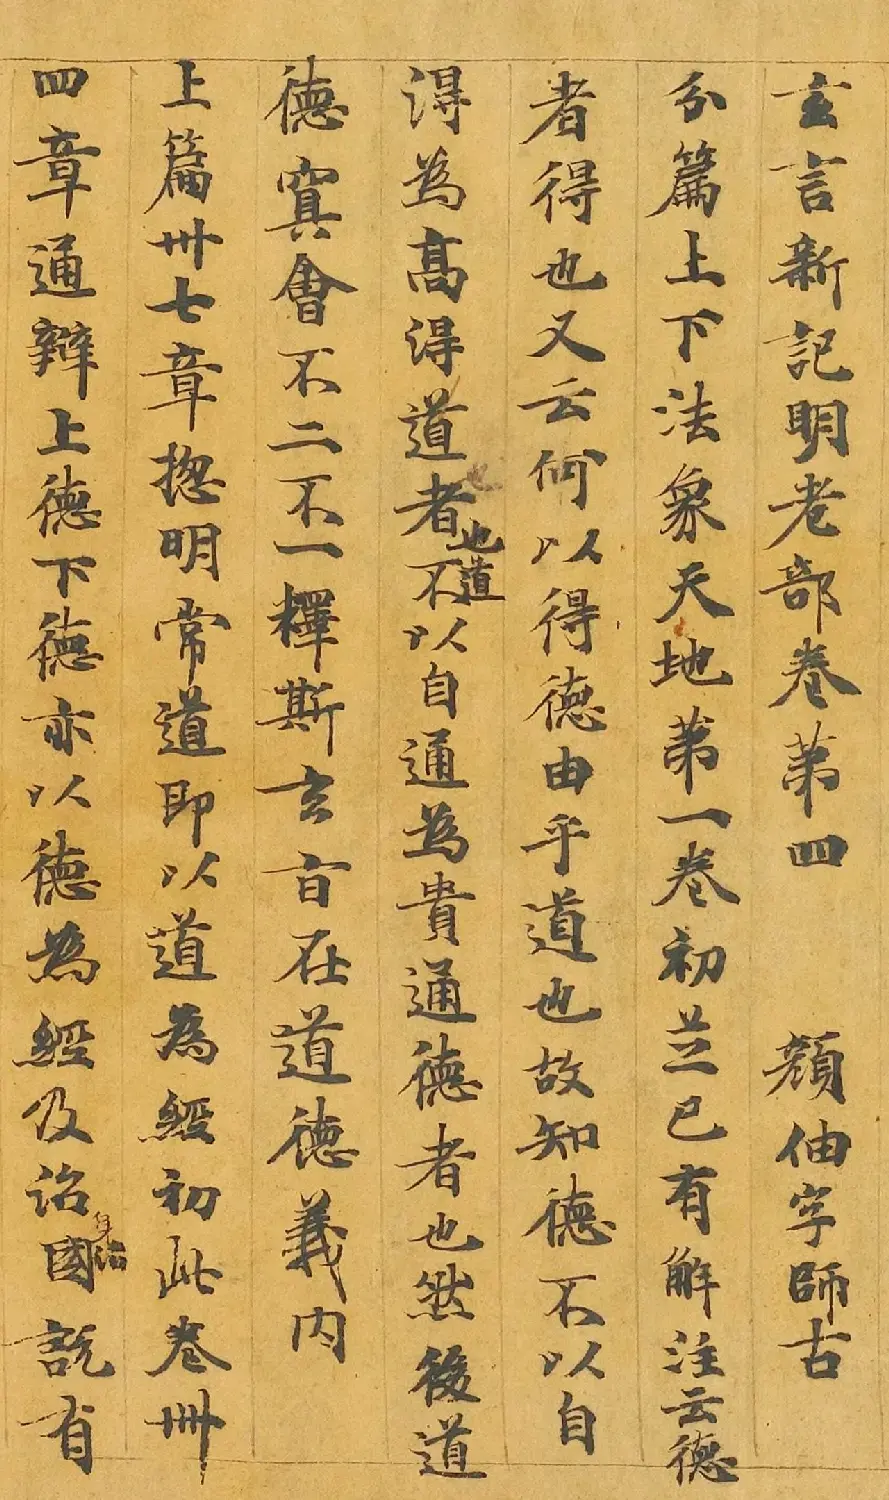 玄言新記明老部卷第四 顏伷字師古
分篇上下法象天地第一卷初並已有解注云德
者得也又云何以得德由乎道也故知德不以自
得為髙得道者也道不以自通為貴通德者也然後道
德㝠會不二不一釋斯玄旨在道德義内
上篇卅七章揔明常道即以道為經初此卷卌
四章通辯上德下德亦以德為經及治身治國說有